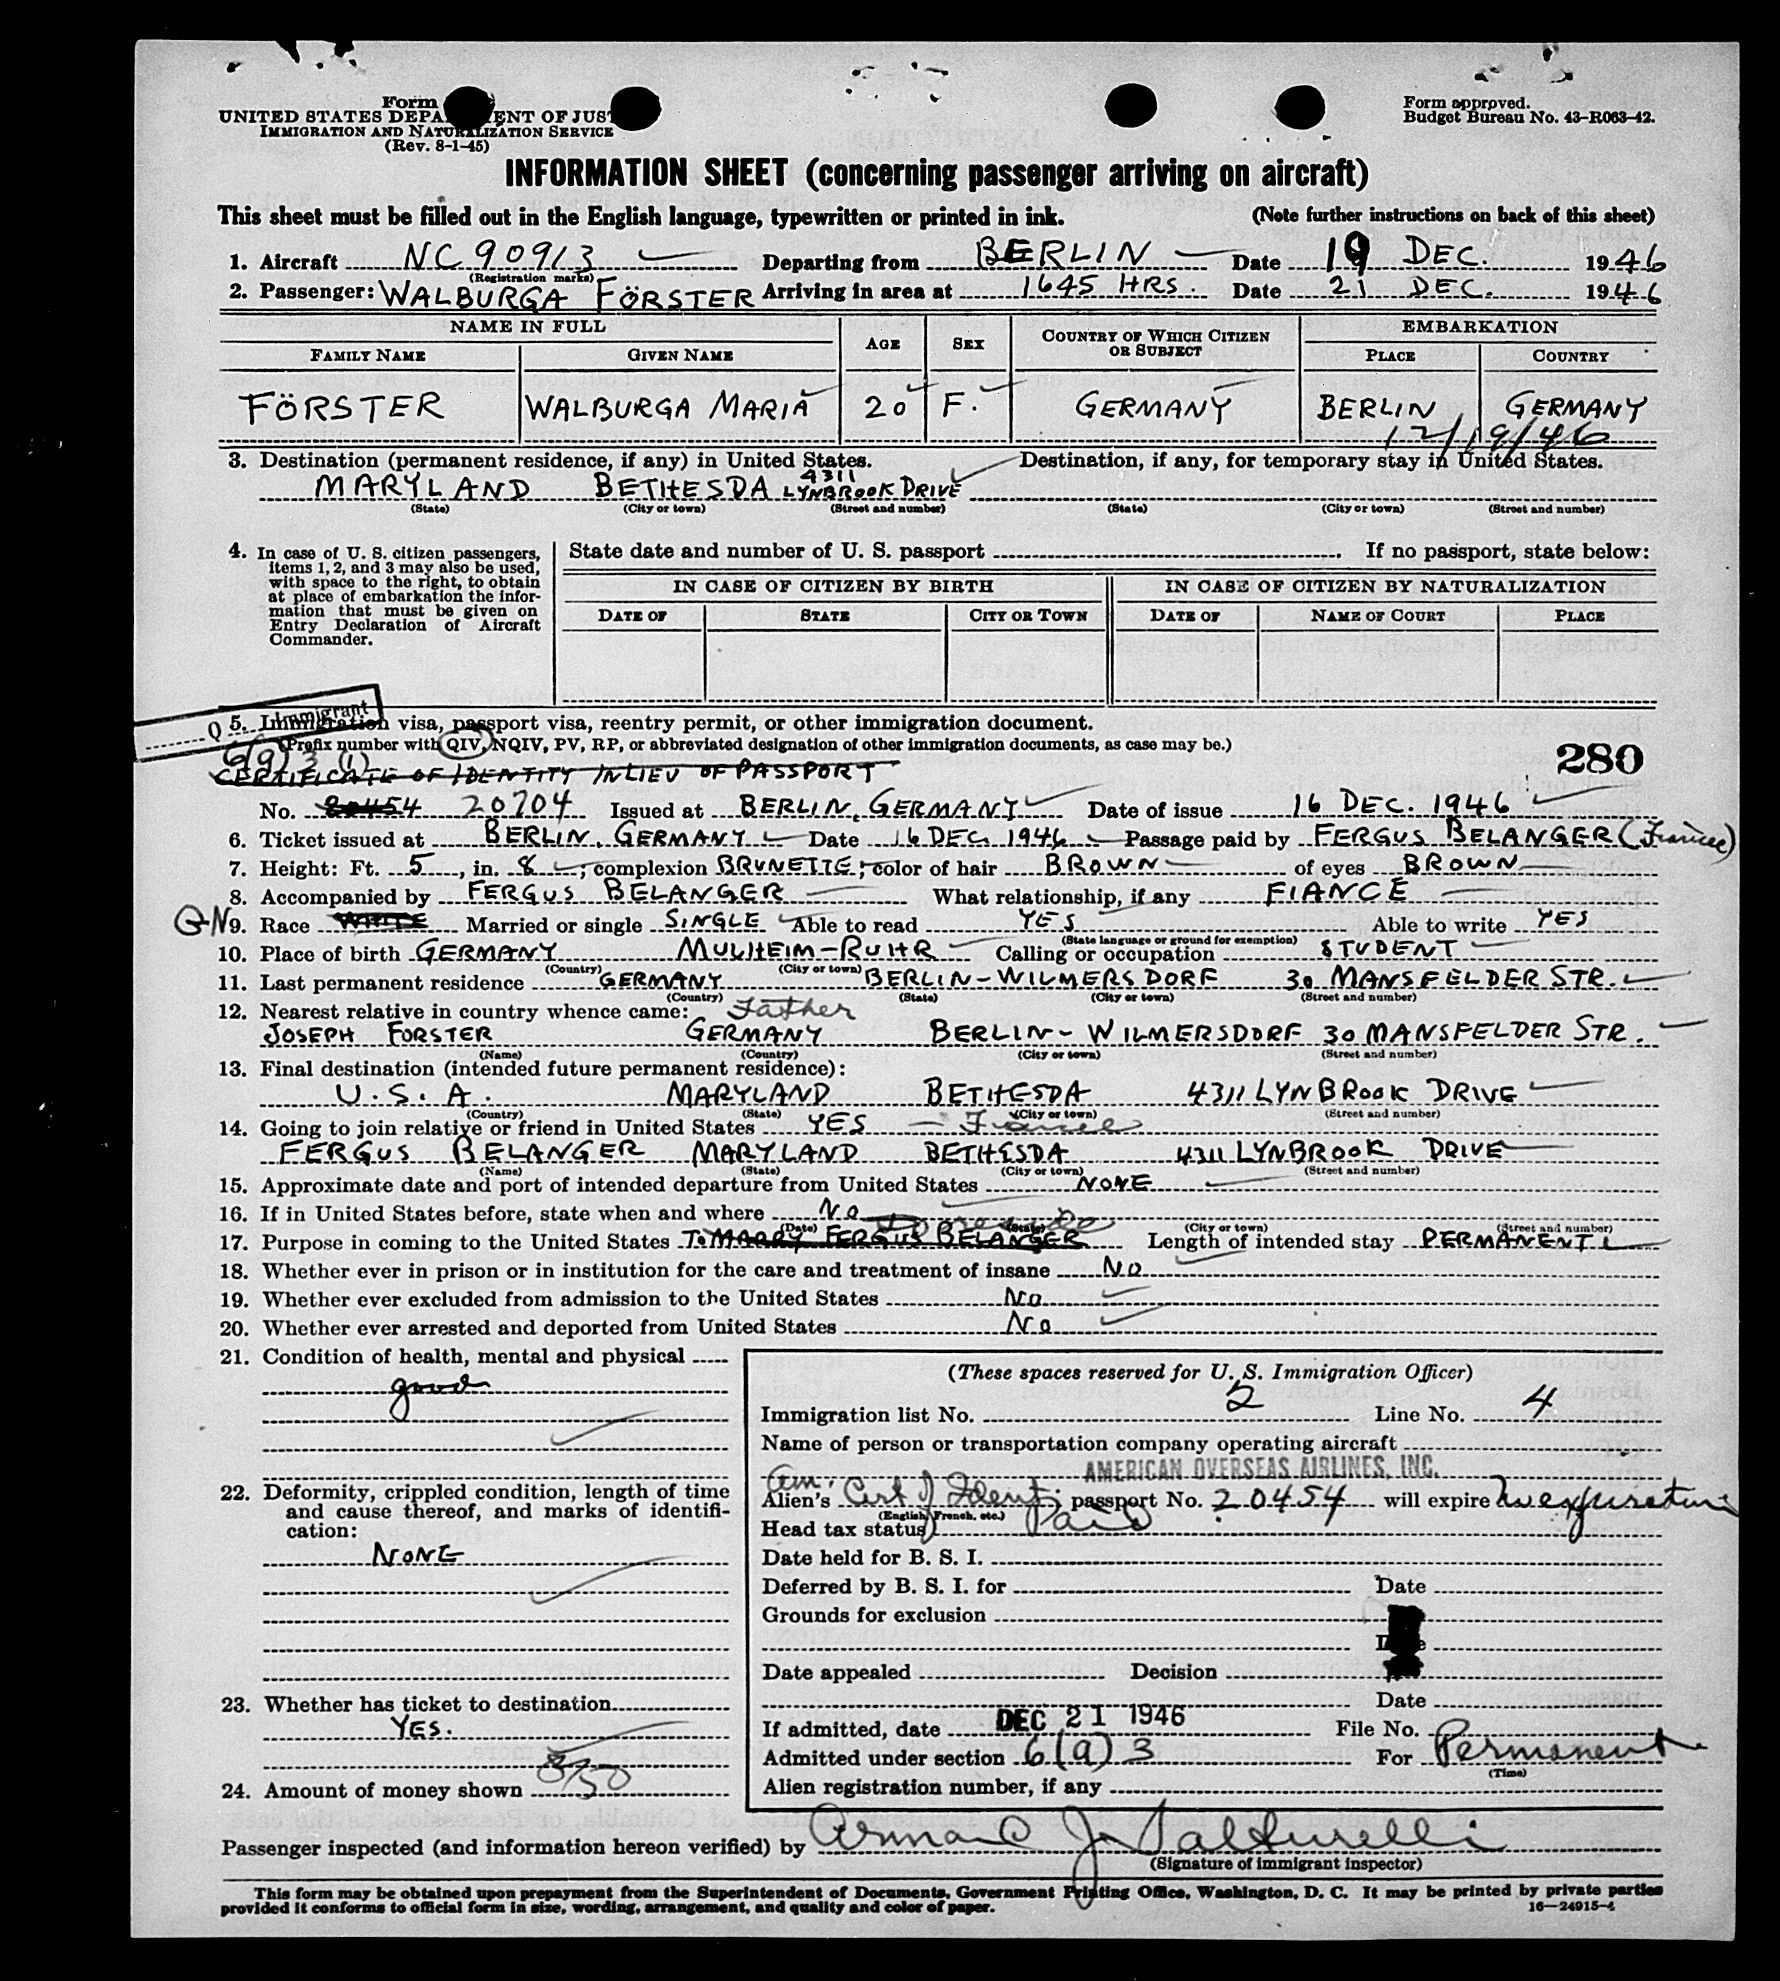 Form
UNITED STATES DEPA ENT OF JUST
IMMIGRATION AND NATURALIZATION SERVICE
(Rev. 8-1-45)
Form approved.
Budget Bureau No. 43-R063-42.
INFORMATION SHEET (concerning passenger arriving on aircraft)
This sheet must be filled out in the English language, typewritten or printed in ink. (Note further instructions on back of this sheet)
1. Aircraft NC 90913 Departing from BERLIN Date 19 DEC. 1946
(Registration marks)
2. Passenger: WALBURGA FÖRSTER Arriving in area at 1645 HRS. Date 21 DEC. 1946
NAME IN FULL AGE SEX COUNTRY OF WHICH CITIZEN OR SUBJECT EMBARKATION
FAMILY NAME GIVEN NAME PLACE COUNTRY
FÖRSTER WALBURGA MARIA 20 F. GERMANY BERLIN, GERMANY
12/19/46
3. Destination (permanent residence, if any) in United States. Destination, if any, for temporary stay in United States.
MARYLAND BETHESDA 4311 LYNBROOK DRIVE
(State) (City or town) (Street and number) (State) (City or town) (Street and number)
4. In case of U. S. citizen passengers, items 1, 2, and 3 may also be used, with space to the right, to obtain at place of embarkation the information that must be given on Entry Declaration of Aircraft Commander.
State date and number of U. S. passport . If no passport, state below:
IN CASE OF CITIZEN BY BIRTH IN CASE OF CITIZEN BY NATURALIZATION
DATE OF STATE CITY OR TOWN DATE OF NAME OF COURT PLACE
Q Immigrant
5. Immigration visa, passport visa, reentry permit, or other immigration document.
(Prefix number with QIV, NQIV, PV, RP, or abbreviated designation of other immigration documents, as case may be.)
6(a) 3 (1)
280
CERTIFICATE OF IDENTITY IN LIEU OF PASSPORT
No. 20454 20704 Issued at BERLIN, GERMANY Date of issue 16 DEC. 1946
6. Ticket issued at BERLIN, GERMANY Date 16 DEC. 1946 Passage paid by FERGUS BELANGER (Fiancee)
7. Height: Ft. 5, in. 8; complexion BRUNETTE; color of hair BROWN of eyes BROWN
8. Accompanied by FERGUS BELANGER What relationship, if any FIANCE
9. Race WHITE Married or single SINGLE Able to read YES Able to write YES
(State language or ground for exemption)
10. Place of birth GERMANY MULHEIM-RUHR Calling or occupation STUDENT
(Country) (City or town)
11. Last permanent residence GERMANY BERLIN-WILMERSDORF 30 MANSFELDER STR.
(Country) (State) (City or town) (Street and number)
12. Nearest relative in country whence came: Father
JOSEPH FORSTER GERMANY BERLIN-WILMERSDORF 30 MANSFELDER STR.
(Name) (Country) (City or town) (Street and number)
13. Final destination (intended future permanent residence):
U.S.A. MARYLAND BETHESDA 4311 LYNBROOK DRIVE
(Country) (State) (City or town) (Street and number)
14. Going to join relative or friend in United States YES - Fiancee
FERGUS BELANGER MARYLAND BETHESDA 4311 LYNBROOK DRIVE
(Name) (State) (City or town) (Street and number)
15. Approximate date and port of intended departure from United States NONE
16. If in United States before, state when and where NO
(Date) (State) (City or town) (Street and number)
17. Purpose in coming to the United States TO MARRY FERGUS BELANGER Length of intended stay PERMANENT
18. Whether ever in prison or in institution for the care and treatment of insane NO
19. Whether ever excluded from admission to the United States NO
20. Whether ever arrested and deported from United States NO
21. Condition of health, mental and physical
good
22. Deformity, crippled condition, length of time and cause thereof, and marks of identification:
NONE
23. Whether has ticket to destination
YES.
24. Amount of money shown
(These spaces reserved for U. S. Immigration Officer)
Immigration list No. 2 Line No. 4
Name of person or transportation company operating aircraft
AMERICAN OVERSEAS AIRLINES, INC.
Alien's Am. Cert of Ident; passport No. 20454 will expire
(English, French, etc.)
Head tax status Paid
Date held for B. S. I.
Deferred by B. S. I. for Date
Grounds for exclusion
Date appealed Decision
Date
If admitted, date DEC 21 1946 File No.
Admitted under section 6(a) 3 For Permanent
(Time)
Alien registration number, if any
Passenger inspected (and information hereon verified) by
(Signature of immigrant inspector)
This form may be obtained upon prepayment from the Superintendent of Documents, Government Printing Office, Washington, D. C. It may be printed by private parties
provided it conforms to official form in size, wording, arrangement, and quality and color of paper.
16—24915-4